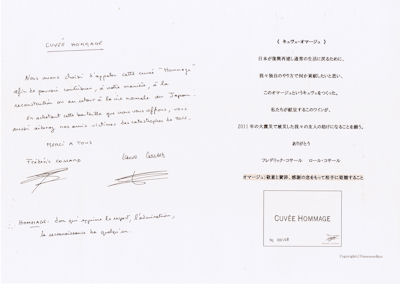 CUVÉE HOMMAGE
Nous avons choisi d'appeler cette cuvée "Hommage"
afin de pouvoir contribuer, à notre manière, à la
reconstruction ou au retour à la vie normale au Japon.
En achetant cette bouteille que nous vous offrons, vous
aussi aiderez nos amis victimes des catastrophes de 2011.
MERCI A TOUS
Frédéric COSSARD Laure COSSARD
HOMMAGE: Don qui exprime le respect, l'admiration,
la reconnaissance de quelqu'un.
《 キュヴェ・オマージュ 》
日本が復興再建し通常の生活に戻るために、
我々独自のやり方で何か貢献したいと思い、
このオマージュというキュヴェをつくった。
私たちが献呈するこのワインが、
2011年の大震災で被災した我々の友人の助けになることを願う。
ありがとう
フレデリック・コサール ロール・コサール
オマージュ:敬意と賞賛、感謝の念をもって相手に寄贈すること
CUVÉE HOMMAGE